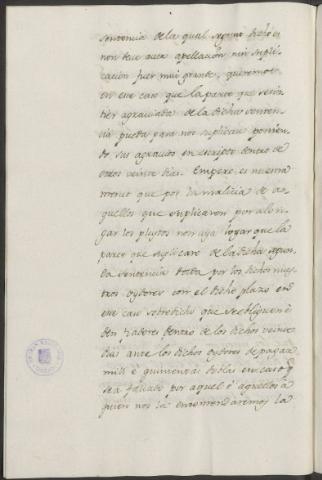 sentencia de la qual segun dicho es
non deve aver apellacion nin supli-
cacion fuer mui grante, queremos
en ese caso que la parte que se sin-
tier agraviada de la dicha senten-
cia pueda para nos suplicar ponien-
do sus agravios en escripto dentro de
estos veinte dias. Empero es nuestra
merced que por la malicia de a-
quellos que suplicaren por alon-
gar los pleytos non aya logar que la
parte que suplicare de la dicha segun-
da sentencia dada por los dichos nues-
tros oydores con el dicho plazo en
ese caso sobredicho que se obliguen è
den fiadores dentro de los dichos veinte
dias ante los dichos oydores de pagar
mill è quinientas doblas en caso q
sea fallado por aquel ò aquellos à
quien nos la encomendaremos la